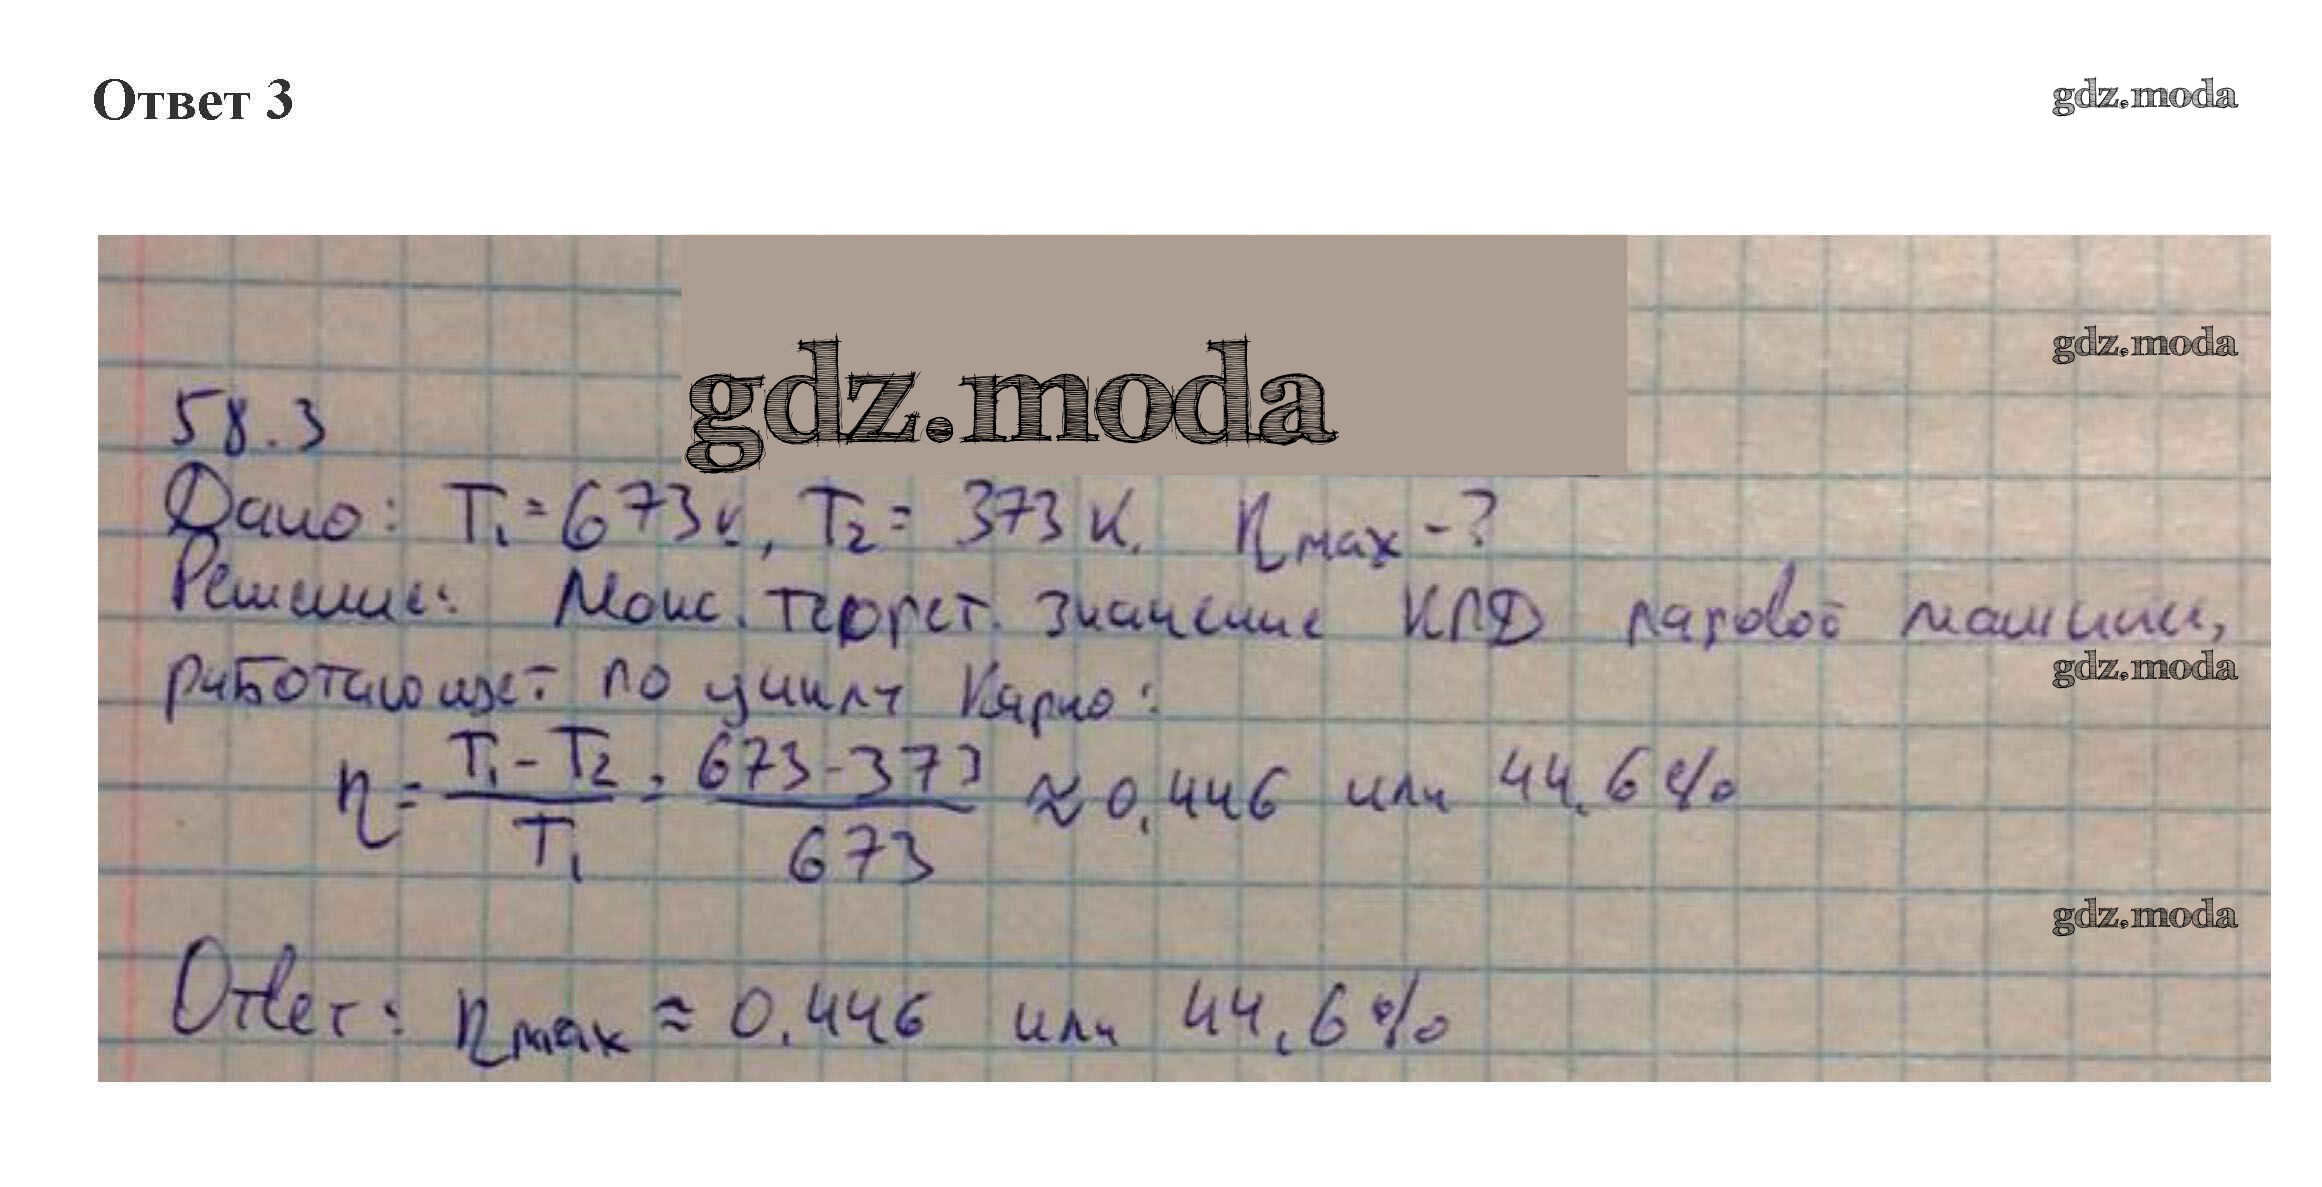 Ответ 3
gdz.moda
gdz.moda
gdz.moda
58.3
Дано: T₁ = 673 К, T₂ = 373 К. η max - ?
Решение: Макс. теорет. значение КПД паровой машины,
gdz.moda
работающей по циклу Карно:
η = (T₁ - T₂)/T₁ = (673 - 373)/673 ≈ 0,446 или 44,6%
gdz.moda
Ответ: η max ≈ 0,446 или 44,6%